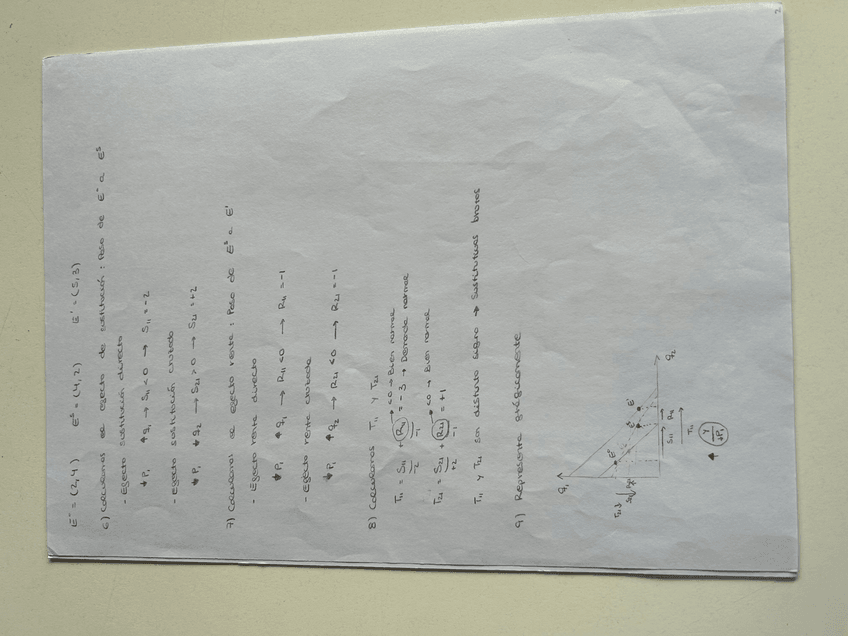 E⁰ = (2,4) Eˢ = (4,2) E' = (5,3)
6) Calculamos el efecto de sustitución: Paso de E⁰ a Eˢ
- Efecto sustitución directo
↓P₁ ↑q₁ → S₁₁ < 0 → S₁₁ = -2
- Efecto sustitución cruzado
↓P₁ ↓q₂ → S₂₁ > 0 → S₂₁ = +2
7) Calculamos el efecto renta: Paso de Eˢ a E'
- Efecto renta directo
↓P₁ ↑q₁ → R₁₁ < 0 → R₁₁ = -1
- Efecto renta cruzada
↓P₁ ↑q₂ → R₂₁ < 0 → R₂₁ = -1
8) Calculamos T₁₁ y T₂₁
<0 → Bien normal
T₁₁ = S₁₁ + R₁₁ = -3 → Demanda normal
-2 -1
<0 → Bien normal
T₂₁ = S₂₁ + R₂₁ = +1
+2 -1
T₁₁ y T₂₁ son distinto signo → Sustitutivos brutos
9) Representa gráficamente
q₁
E⁰
E'
q₂
S₁₁ R₁₁
T₁₁
Y
↓P₁